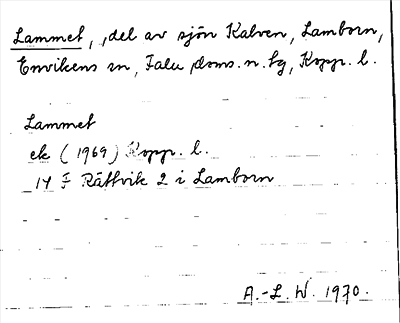 Lammet, del av sjön Kalven, Lamborn,
Envikens sn, Falu doms.n. tg, Kopp. l.
Lammet
ek (1969) Kopp. l.
14 F Rättvik 2 i Lamborn
A.-L. W. 1970.